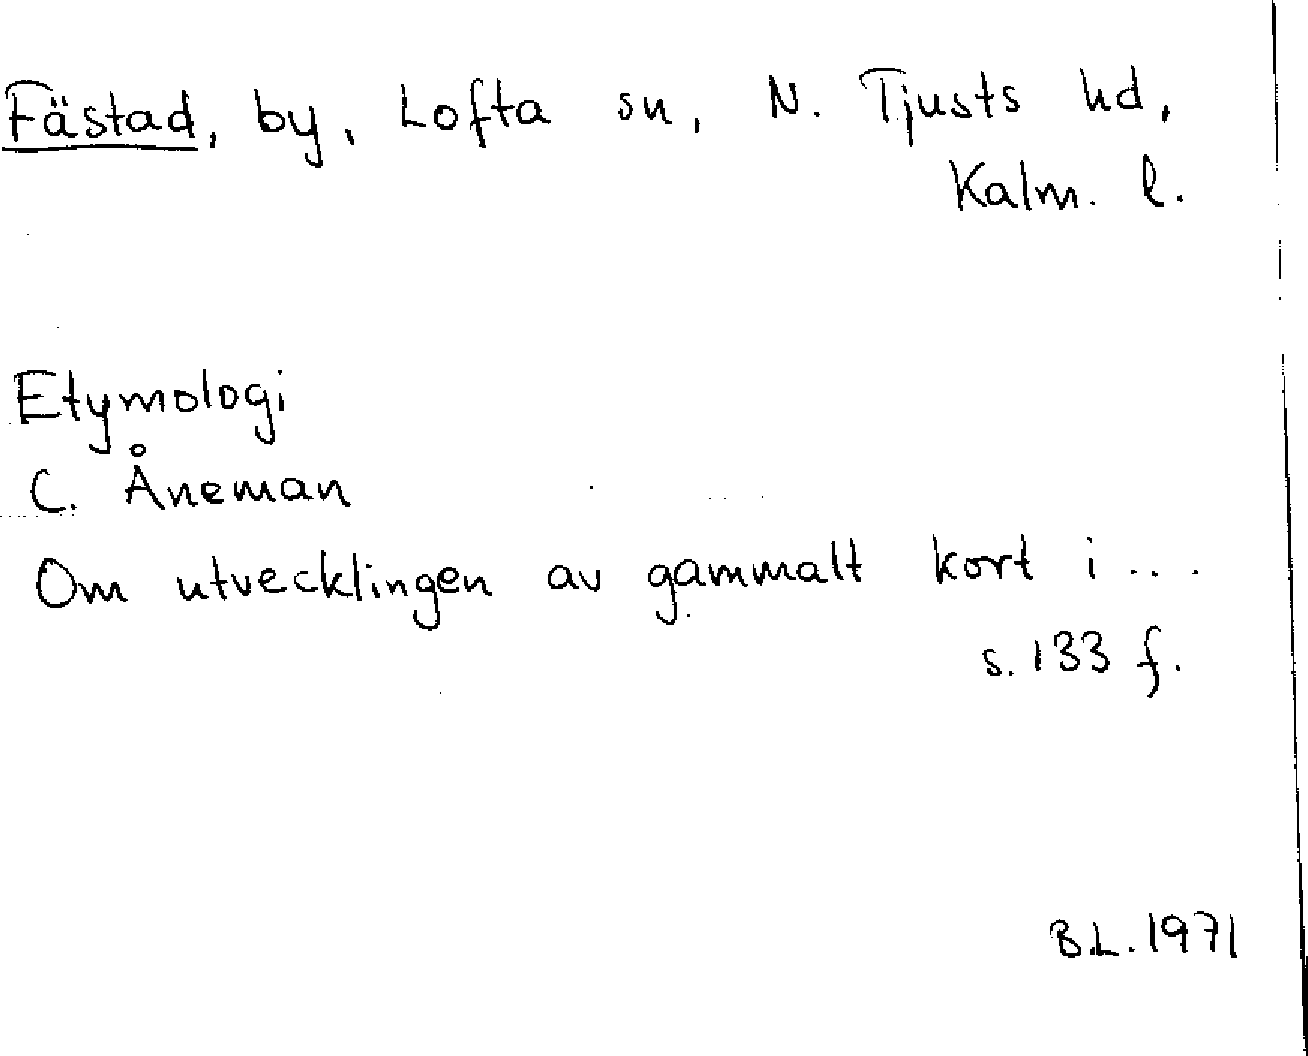 Fästad, by, Lofta sn, N. Tjusts hd,
Kalm. l.
Etymologi
C. Åneman
Om utvecklingen av gammalt kort i ...
s. 133 f.
B.L. 1971